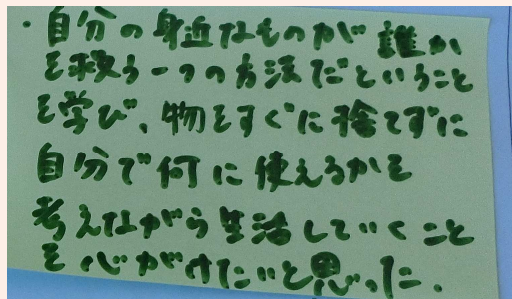 ・自分の身近なものが誰か
を救う一つの方法だということ
を学び、物をすぐに捨てずに
自分で何に使えるかを
考えながら生活していくこと
を心がけたいと思った。